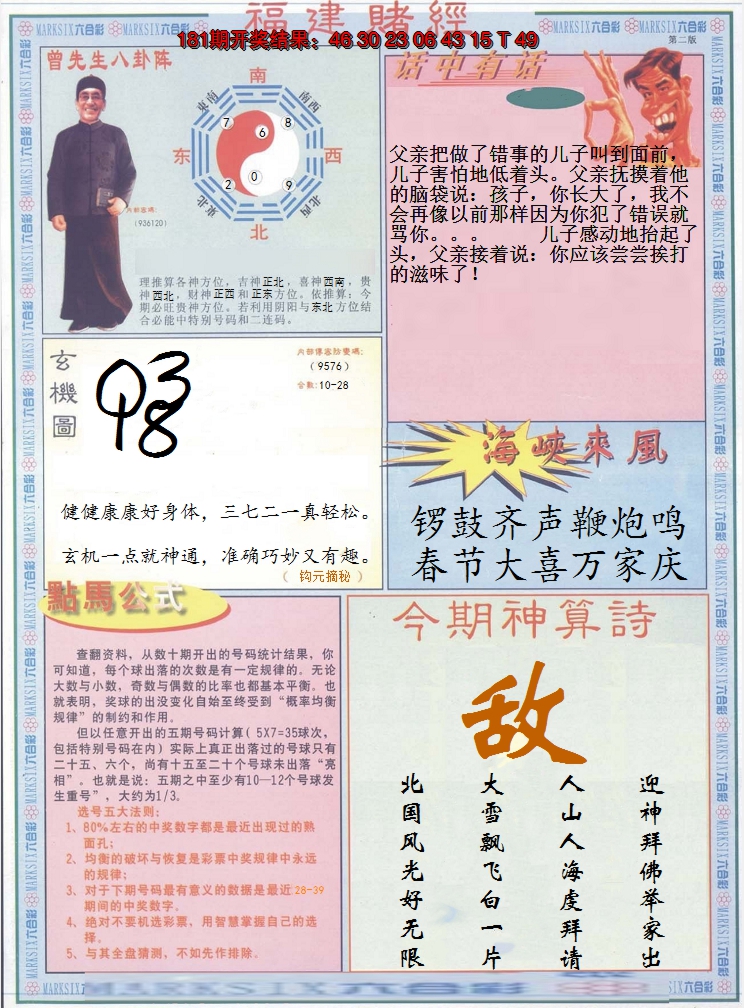 福建賭經
181期开奖结果：46 30 23 06 43 15 T 49
第二版
MARKSIX六合彩
曾先生八卦阵
南
东南
南西
7
6
8
东
西
2
0
9
东北
北西
北
（936120）
理推算各神方位，吉神正北，喜神西南，贵
神西北，财神正西和正东方位。依推算：今
期必旺贵神方位。若利用阴阳与东北方位结
合必能中特别号码和二连码。
话中有话
父亲把做了错事的儿子叫到面前，
儿子害怕地低着头。父亲抚摸着他
的脑袋说：孩子，你长大了，我不
会再像以前那样因为你犯了错误就
骂你。。。 儿子感动地抬起了
头，父亲接着说：你应该尝尝挨打
的滋味了！
玄機圖
（9576）
合数:10-28
健健康康好身体，三七二一真轻松。
玄机一点就神通，准确巧妙又有趣。
（ 钩元摘秘 ）
海峽來風
锣鼓齐声鞭炮鸣
春节大喜万家庆
點馬公式
查翻资料，从数十期开出的号码统计结果，你
可知道，每个球出落的次数是有一定规律的。无论
大数与小数，奇数与偶数的比率也都基本平衡。也
就表明，奖球的出没变化自始至终受到“概率均衡
规律”的制约和作用。
但以任意开出的五期号码计算（5X7=35球次，
包括特别号码在内）实际上真正出落过的号球只有
二十五、六个，尚有十五至二十个号球未出落“亮
相”。也就是说：五期之中至少有10—12个号球发
生重号”，大约为1/3。
选号五大法则：
1、80%左右的中奖数字都是最近出现过的熟
面孔；
2、均衡的破坏与恢复是彩票中奖规律中永远
的规律；
3、对于下期号码最有意义的数据是最近28-39
期间的中奖数字。
4、绝对不要机选彩票，用智慧掌握自己的选
择。
5、与其全盘猜测，不如先作排除。
今期神算詩
敌
迎神拜佛举家出
人山人海虔拜请
大雪飘飞白一片
北国风光好无限